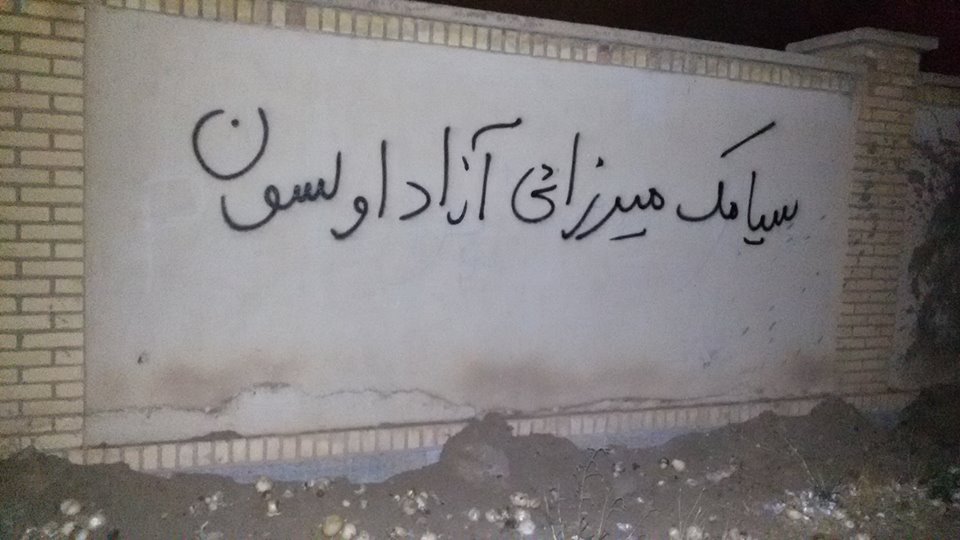 سیامک میرزائی آزاد اولسون